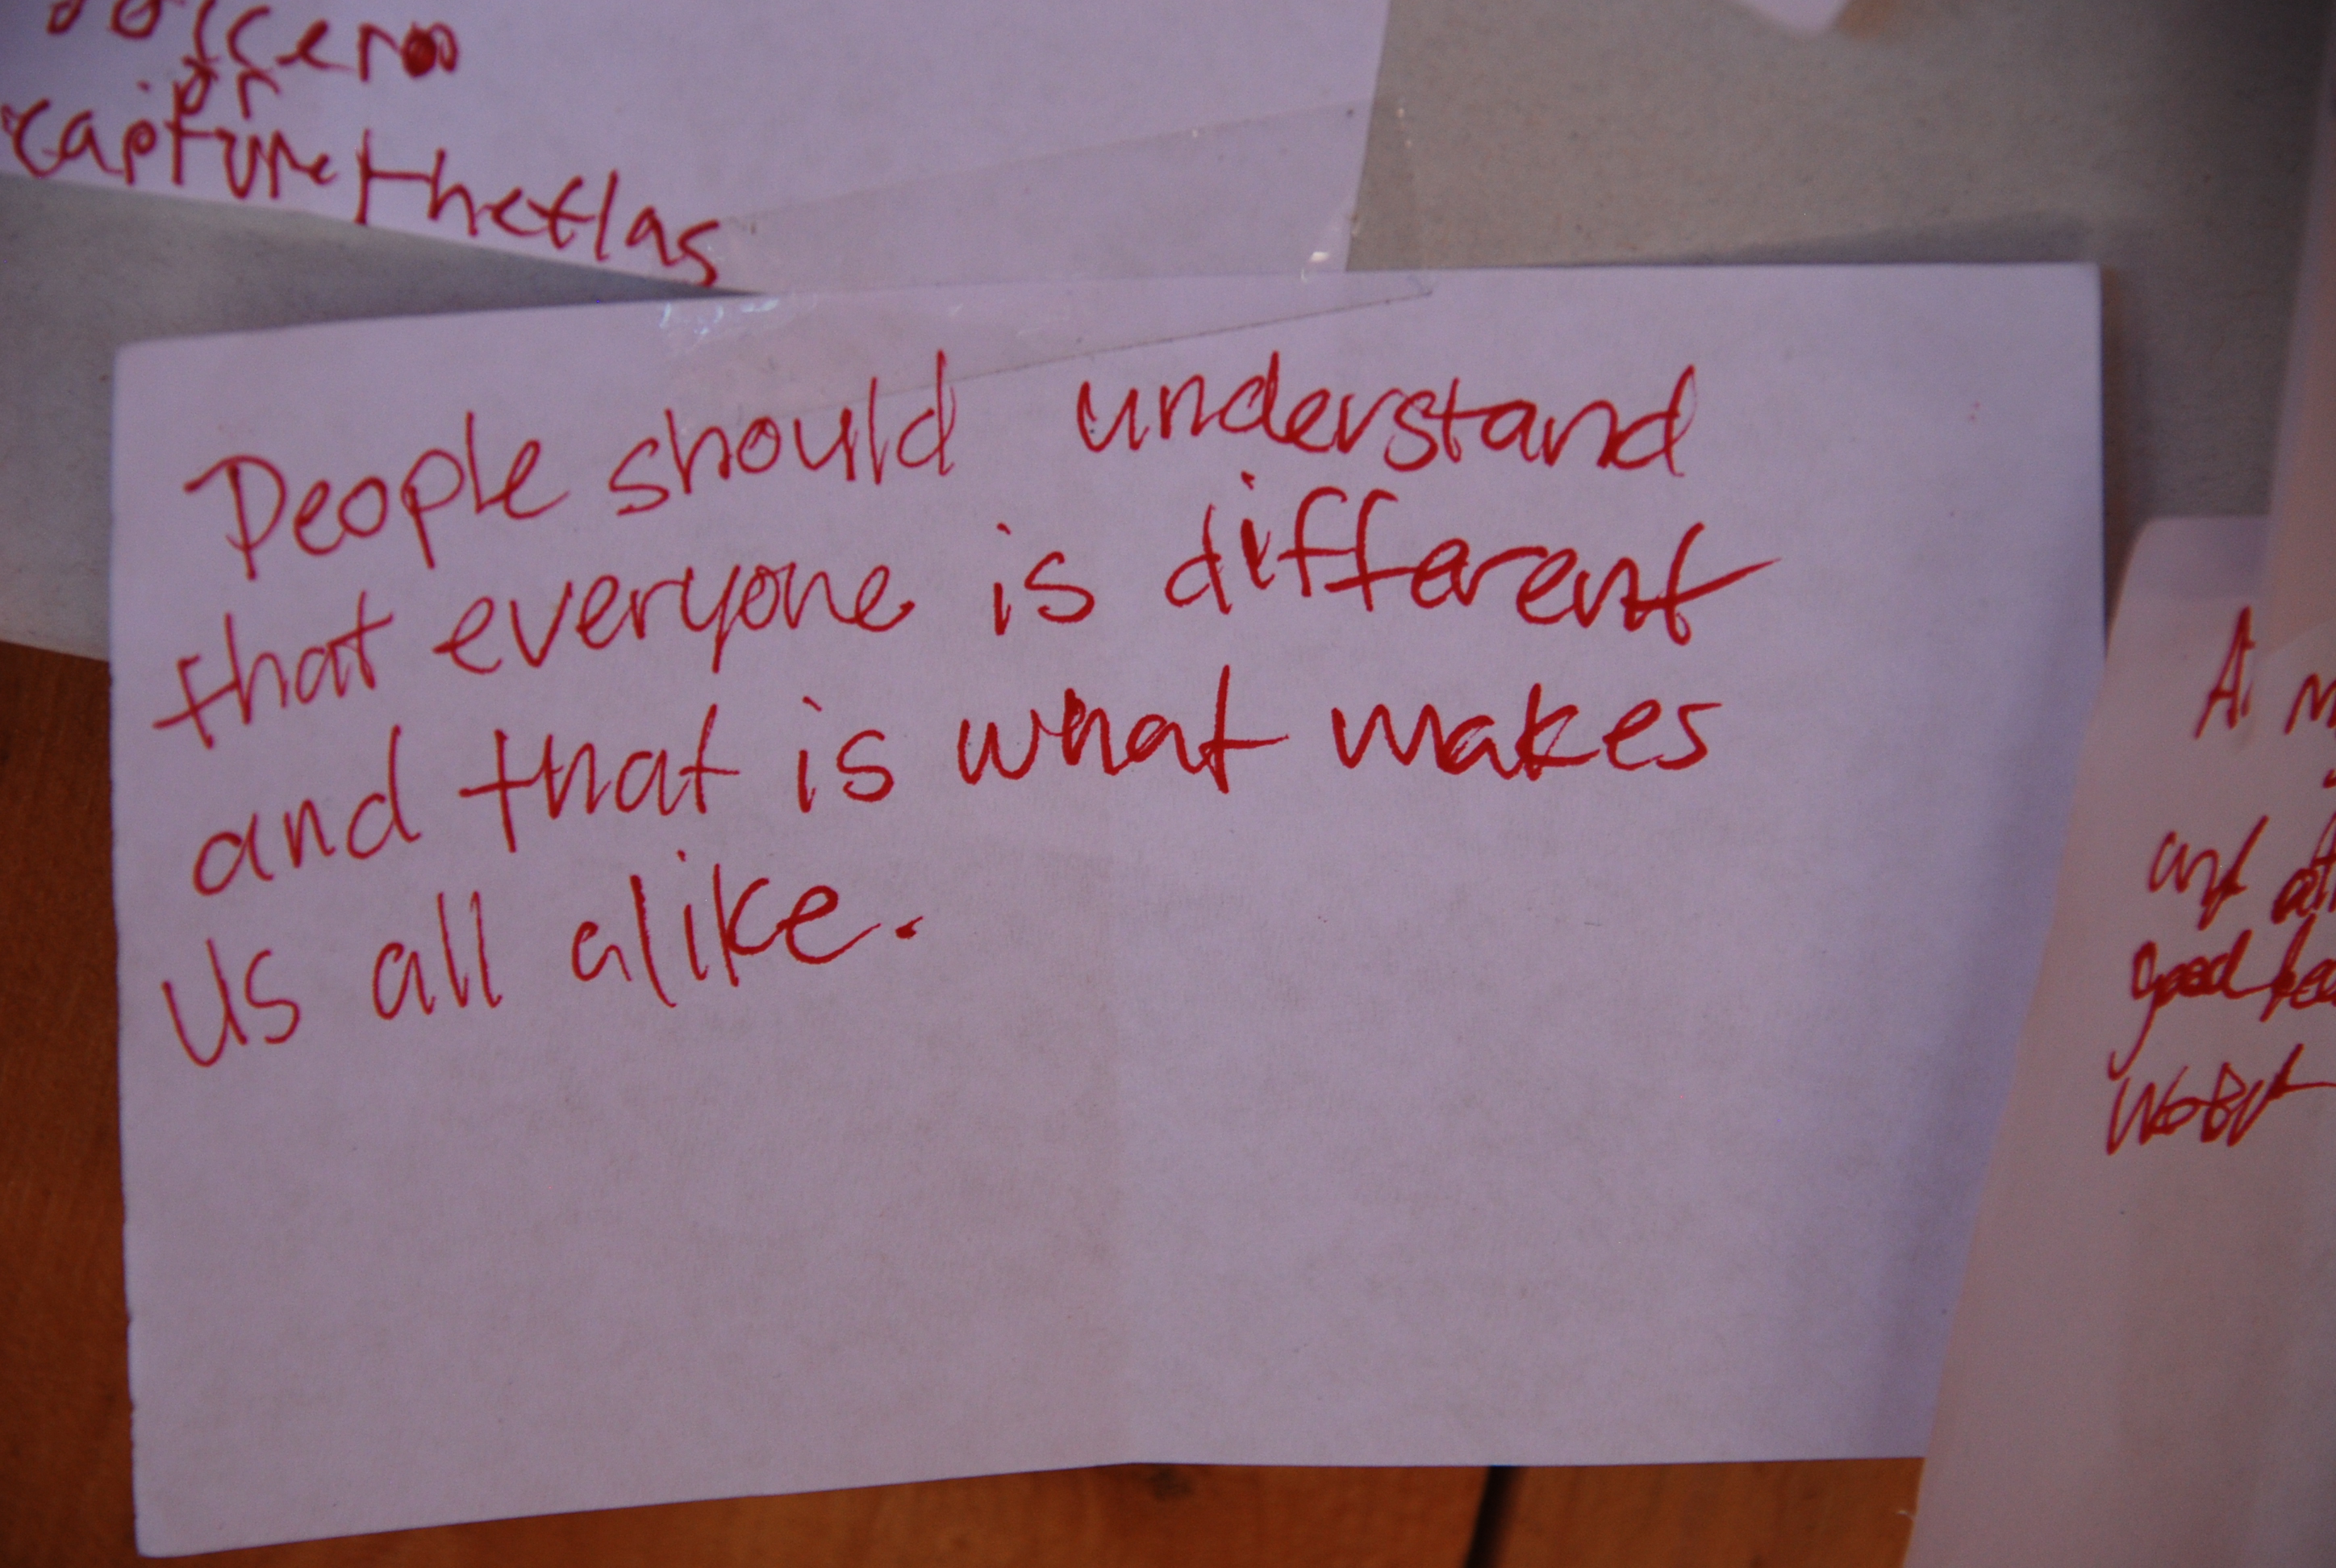 or
capturethe flas
People should understand
that everyone is different
and that is what makes
us all alike.
A
good